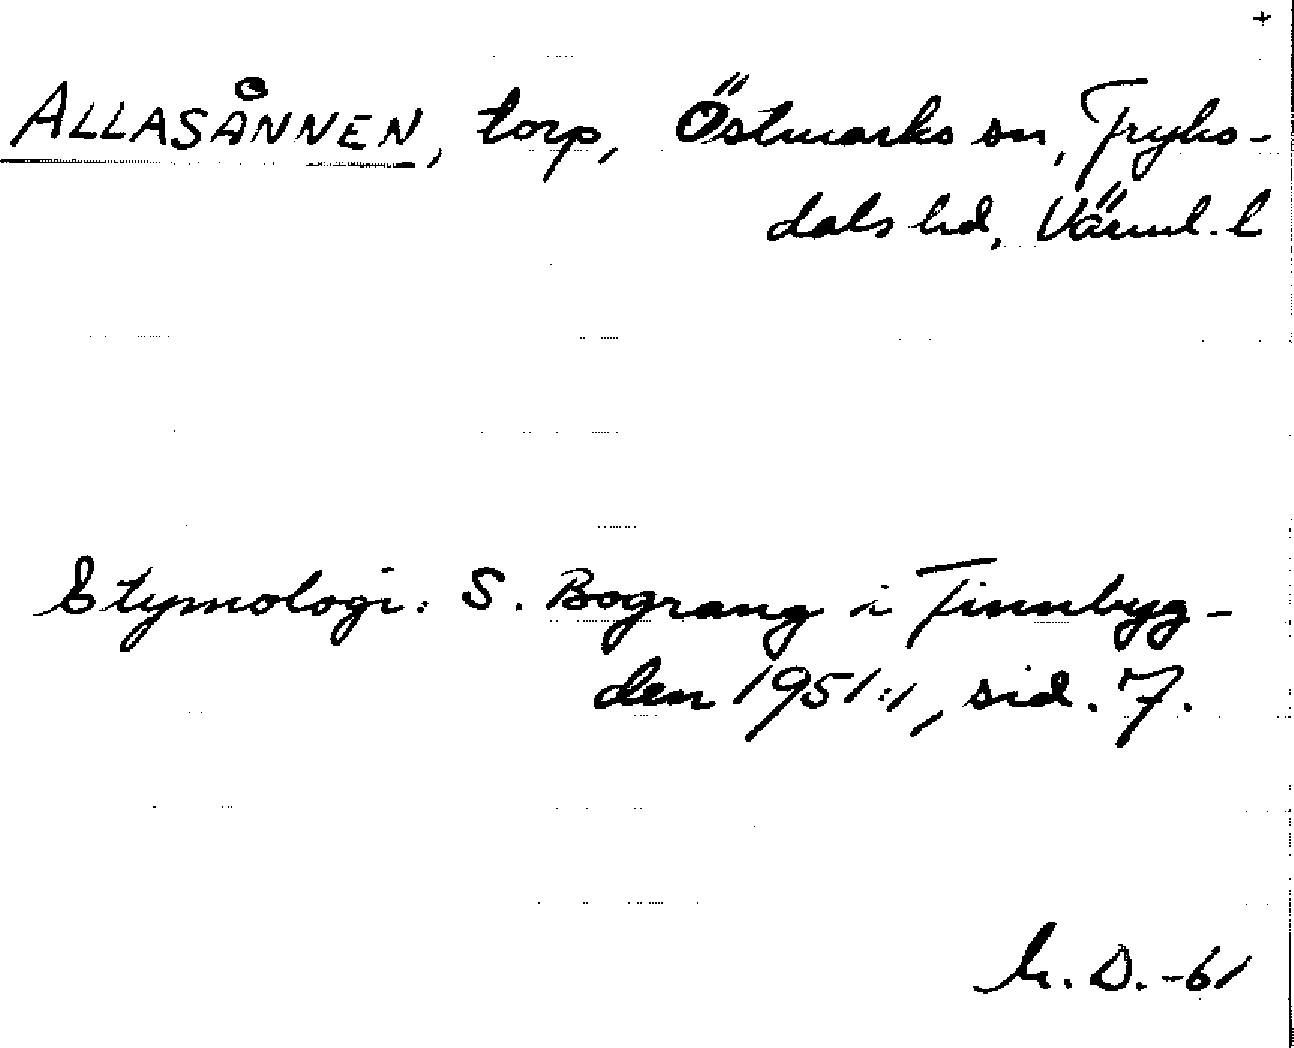 +
ALLASÅNNEN, torp, Östmarks sn, Fryks-
dals hd, Värml. l
Etymologi: S. Bograng i Finnbyg-
den 1951:1, sid. 7.
D. -61